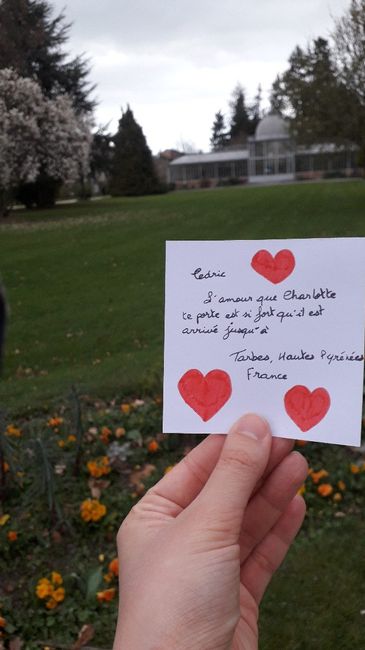 Cédric
L'amour que Charlotte
te porte est si fort qu'il est
arrivé jusqu'à
Tarbes, Hautes Pyrénées
France